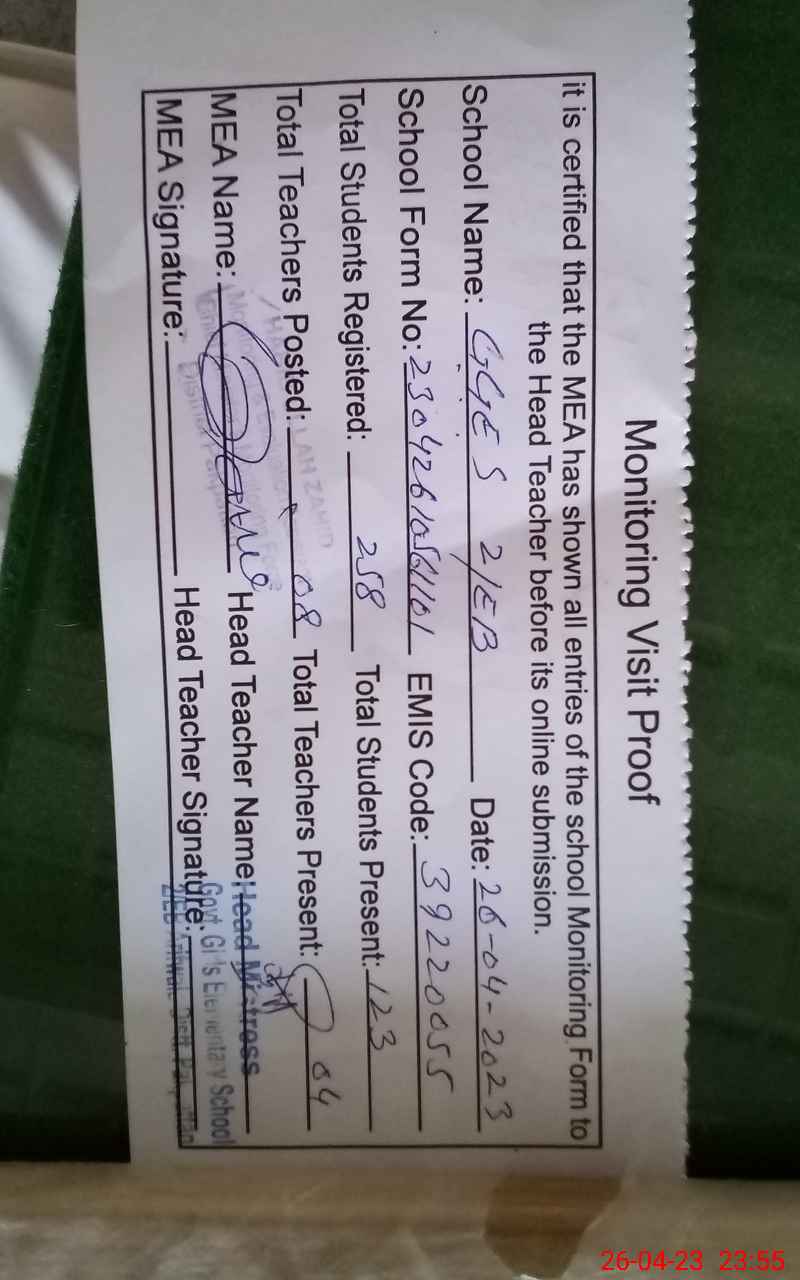 Monitoring Visit Proof
it is certified that the MEA has shown all entries of the school Monitoring Form to
the Head Teacher before its online submission.
School Name: GGES 2/EB Date: 26-04-2023
School Form No: EMIS Code: 39220055
Total Students Registered: 258 Total Students Present: 123
Total Teachers Posted: 08 Total Teachers Present: 04
MEA Name: Head Teacher Name: Head Mistress
MEA Signature: Head Teacher Signature:
Govt Girls Elementary School
2/EB Arifwala Distt. Pakpattan
26-04-23 23:55